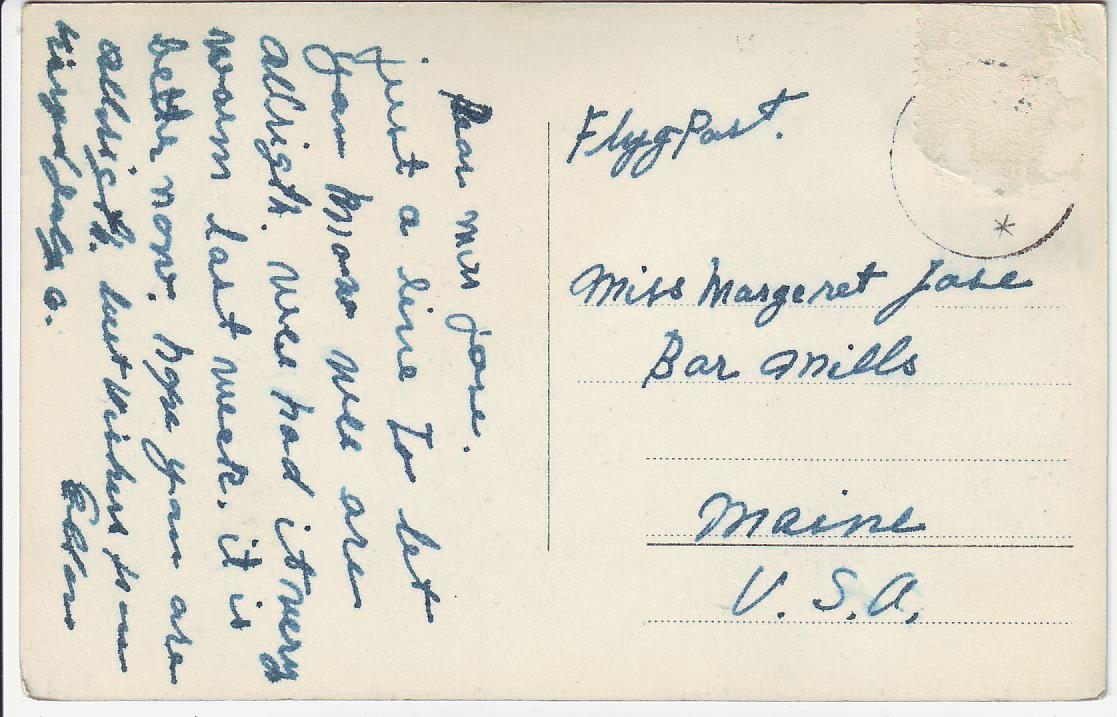 Dear miss Jose.
just a line To let
you know wee are
allrigth. wee had it very
warm last week. it is
better now. hope you are
allrigth. best wishes from
Ellen
FlygPost.
Miss Margeret Jose
Bar Mills
Maine
U. S. A.